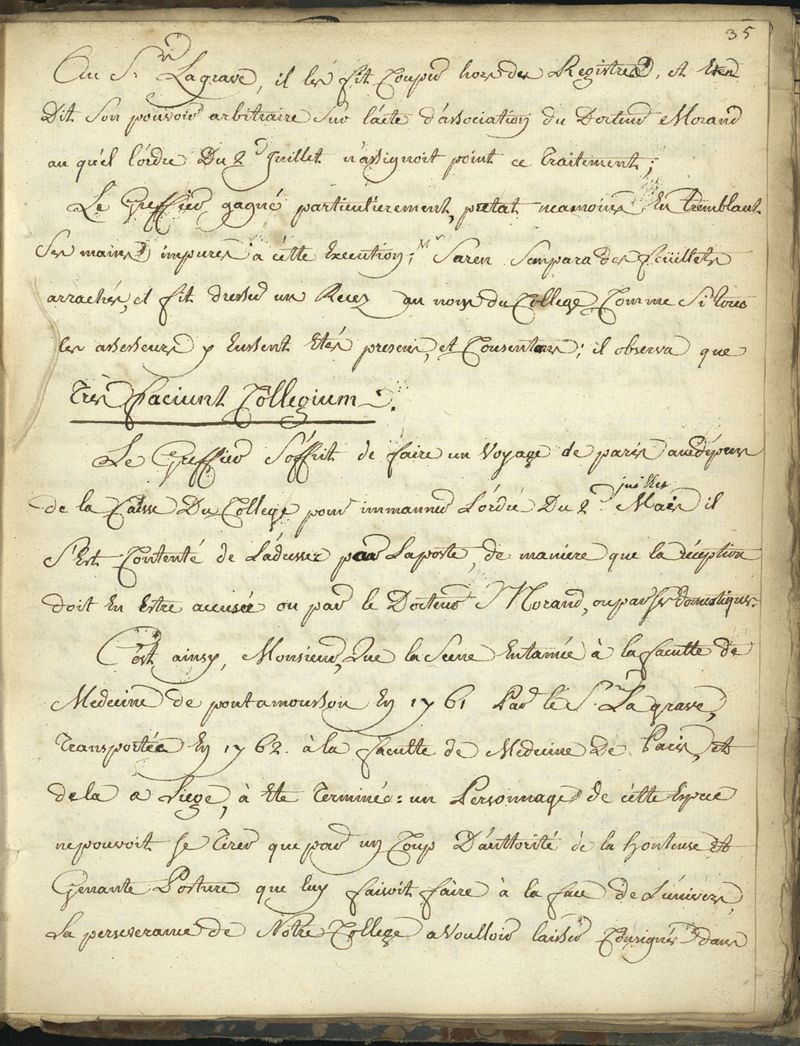 35
Au S.r Lagrave, il les fit Couper hors des Registres, et Eten
Dit Son pouvoir arbitraire Sur l'acte d'association du Docteur Morand
au quel l'ordre Du 2.d Juillet n'assignoit point ce traitement;
Le Greffier gagné particulierement, pretat neamoins En tremblant
Ses mains impures a cette Execution; Mr Saren Sempara des feüillets
arrachés, et fit dresser un Recez au nom du College, Comme Si tous
les assesseurs y Eussent Etés presens, et Consentans; il observa que
Tres Faciunt Collegium.
Le Greffier S'offrit de faire un Voyage de paris aux dépens
de la Caisse Du College pour immanner L'ordre Du 2.d juillet Mais il
S'Est Contenté de L'adresser par La poste, de maniere que la réception
doit En Estre accusée ou par le Docteur Morand, ou par ses domestiques.
C'est ainsy, Monsieur, Que la Scene Entamée à la faculté de
Medecine de pontamousson En 1761 Par le S.r La grave,
Transportée En 1762. à la faculté de Medecine De Paris, et
de la a Liege, à Ete Terminée: un Personnage de cette Espece
ne pouvoit se Tirer que par un Coup D'authorité de la honteuse Et
Genante Posture que Luy faisoit faire à la face de L'univers,
La perseverance de Notre College a Voulloir laisser Consignés dans